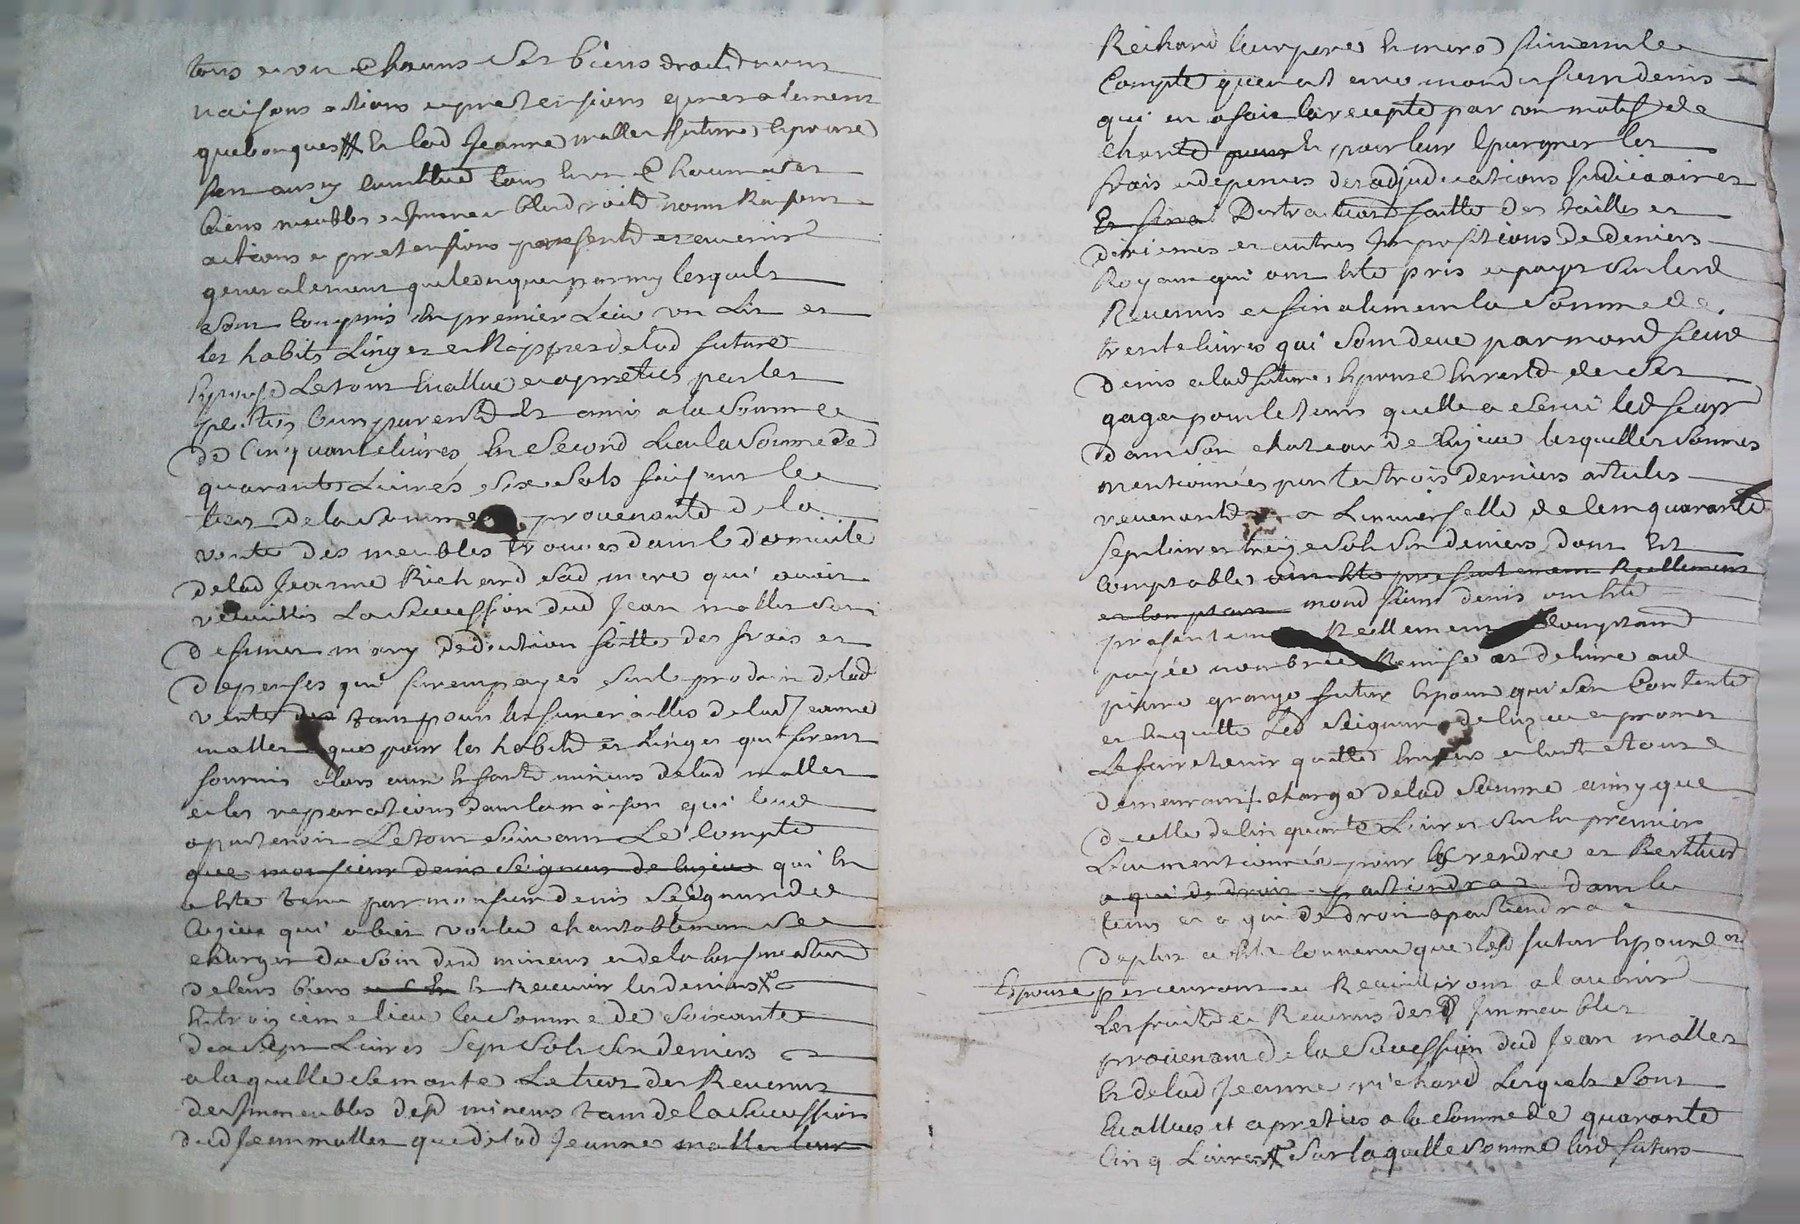 tous et un Chacuns Ses biens droitd noms
raisons actions et pretensions generalement
quelconques # Et lad Jeanne mallet future Epouse
sest aussy Constitué tous Et un Chacun ses
biens meubles et Immeubles droitd noms Raisons
actions et pretensions presentd et avenir
generalement quelconque parmy lesquels
sont Compris En premier Lieu un Lit et
les habits Linges et Nippes delad future
Epouse Le tout Evallué et apretiés par les
parties Leurs parentd Et amis a la Somme
de Cinquante livres En Second Lieu la Somme de
quarante Livres six Sols faisant le
tiers de la Somme provenante de la
vente des meubles trouves dans le domicile
delad Jeanne Richard sad mere qui avoit
receuillis La Succession dud Jean mallet son
defunct mary deduction faitte des frais et
depenses qui furent payes sur le produit delad
vente tant pour les funerailles delad Jeanne
mallet que pour les habitd et Linges qui furent
fournis alors aux Enfantd mineurs delad mallet
et les reparations dans la maison qui leur
apartenoit Le tout suivant Le Compte
que monsieur denis Seigneur de Cuzieu qui En
a Eté tenu par monsieur denis Seigneur de
Cuzieu qui a bien voulu charitablement se
charger du Soin desd mineurs et de la Conservation
de leurs biens Et Recevoir les deniers
En troisieme lieu la Somme de Soixante
dix Sept Livres Sept Sols Six deniers
a laquelle se monte Le tiers des Revenus
des Immeubles desd mineurs tant de la Succession
dud Jean mallet que delad Jeanne mallet leur
Richard leur pere Et mere suivant le
Compte quen a tenu mond sieur denis
qui en a fait la recepte par un motif de
Charité pour Et pour leur Epargner les
frais et depences des adjudications Judiciaires
Et sina Distraction faitte des tailles et
dixiemes et autres Impositions de deniers
Royaux qui ont Eté pris et payes sur lesd
Revenus et finalement la Somme de
trente livres qui Sont deue par mond sieur
denis a lad future Epouse En reste de Ses
gages pour le tems quelle a Servi led sieur
dans son chateau de Cuzieu lesquelles Sommes
mentionnées par les trois derniers articles
revenantd a Luniverselle de Cent quarante
Sept livres treize Sols Six deniers dont Est
Comptable ont Eté presentement Reellement
et Comptant mond sieur denis ont Eté
presentement Reellement Comptant
payée nombrée Remise et delivré aud
pierre grange futur Epoux qui sen Contente
et En quitte Led Seigneur de Cuzieu et promet
Le faire tenir quitte Envers et Contre tous
demeurant chargé delad Somme ainsy que
de celle de Cinquante Livres En premier
Lieu mentionnée pour les rendre et Restituer
a qui de droit apartiendra dans le
tems et a qui de droit apartiendra
de plus a Eté Convenu que lesd futur Epoux et
Epouse percevront et Receuilliront a lavenir
Les fruitd et Revenus desd Immeubles
provenant de la Succession dud Jean mallet
Et delad Jeanne richard Lesquels Sont
Evallués et apretiés a la Somme de quarante
Cinq Livres # Sur laquelle Somme lesd futurs